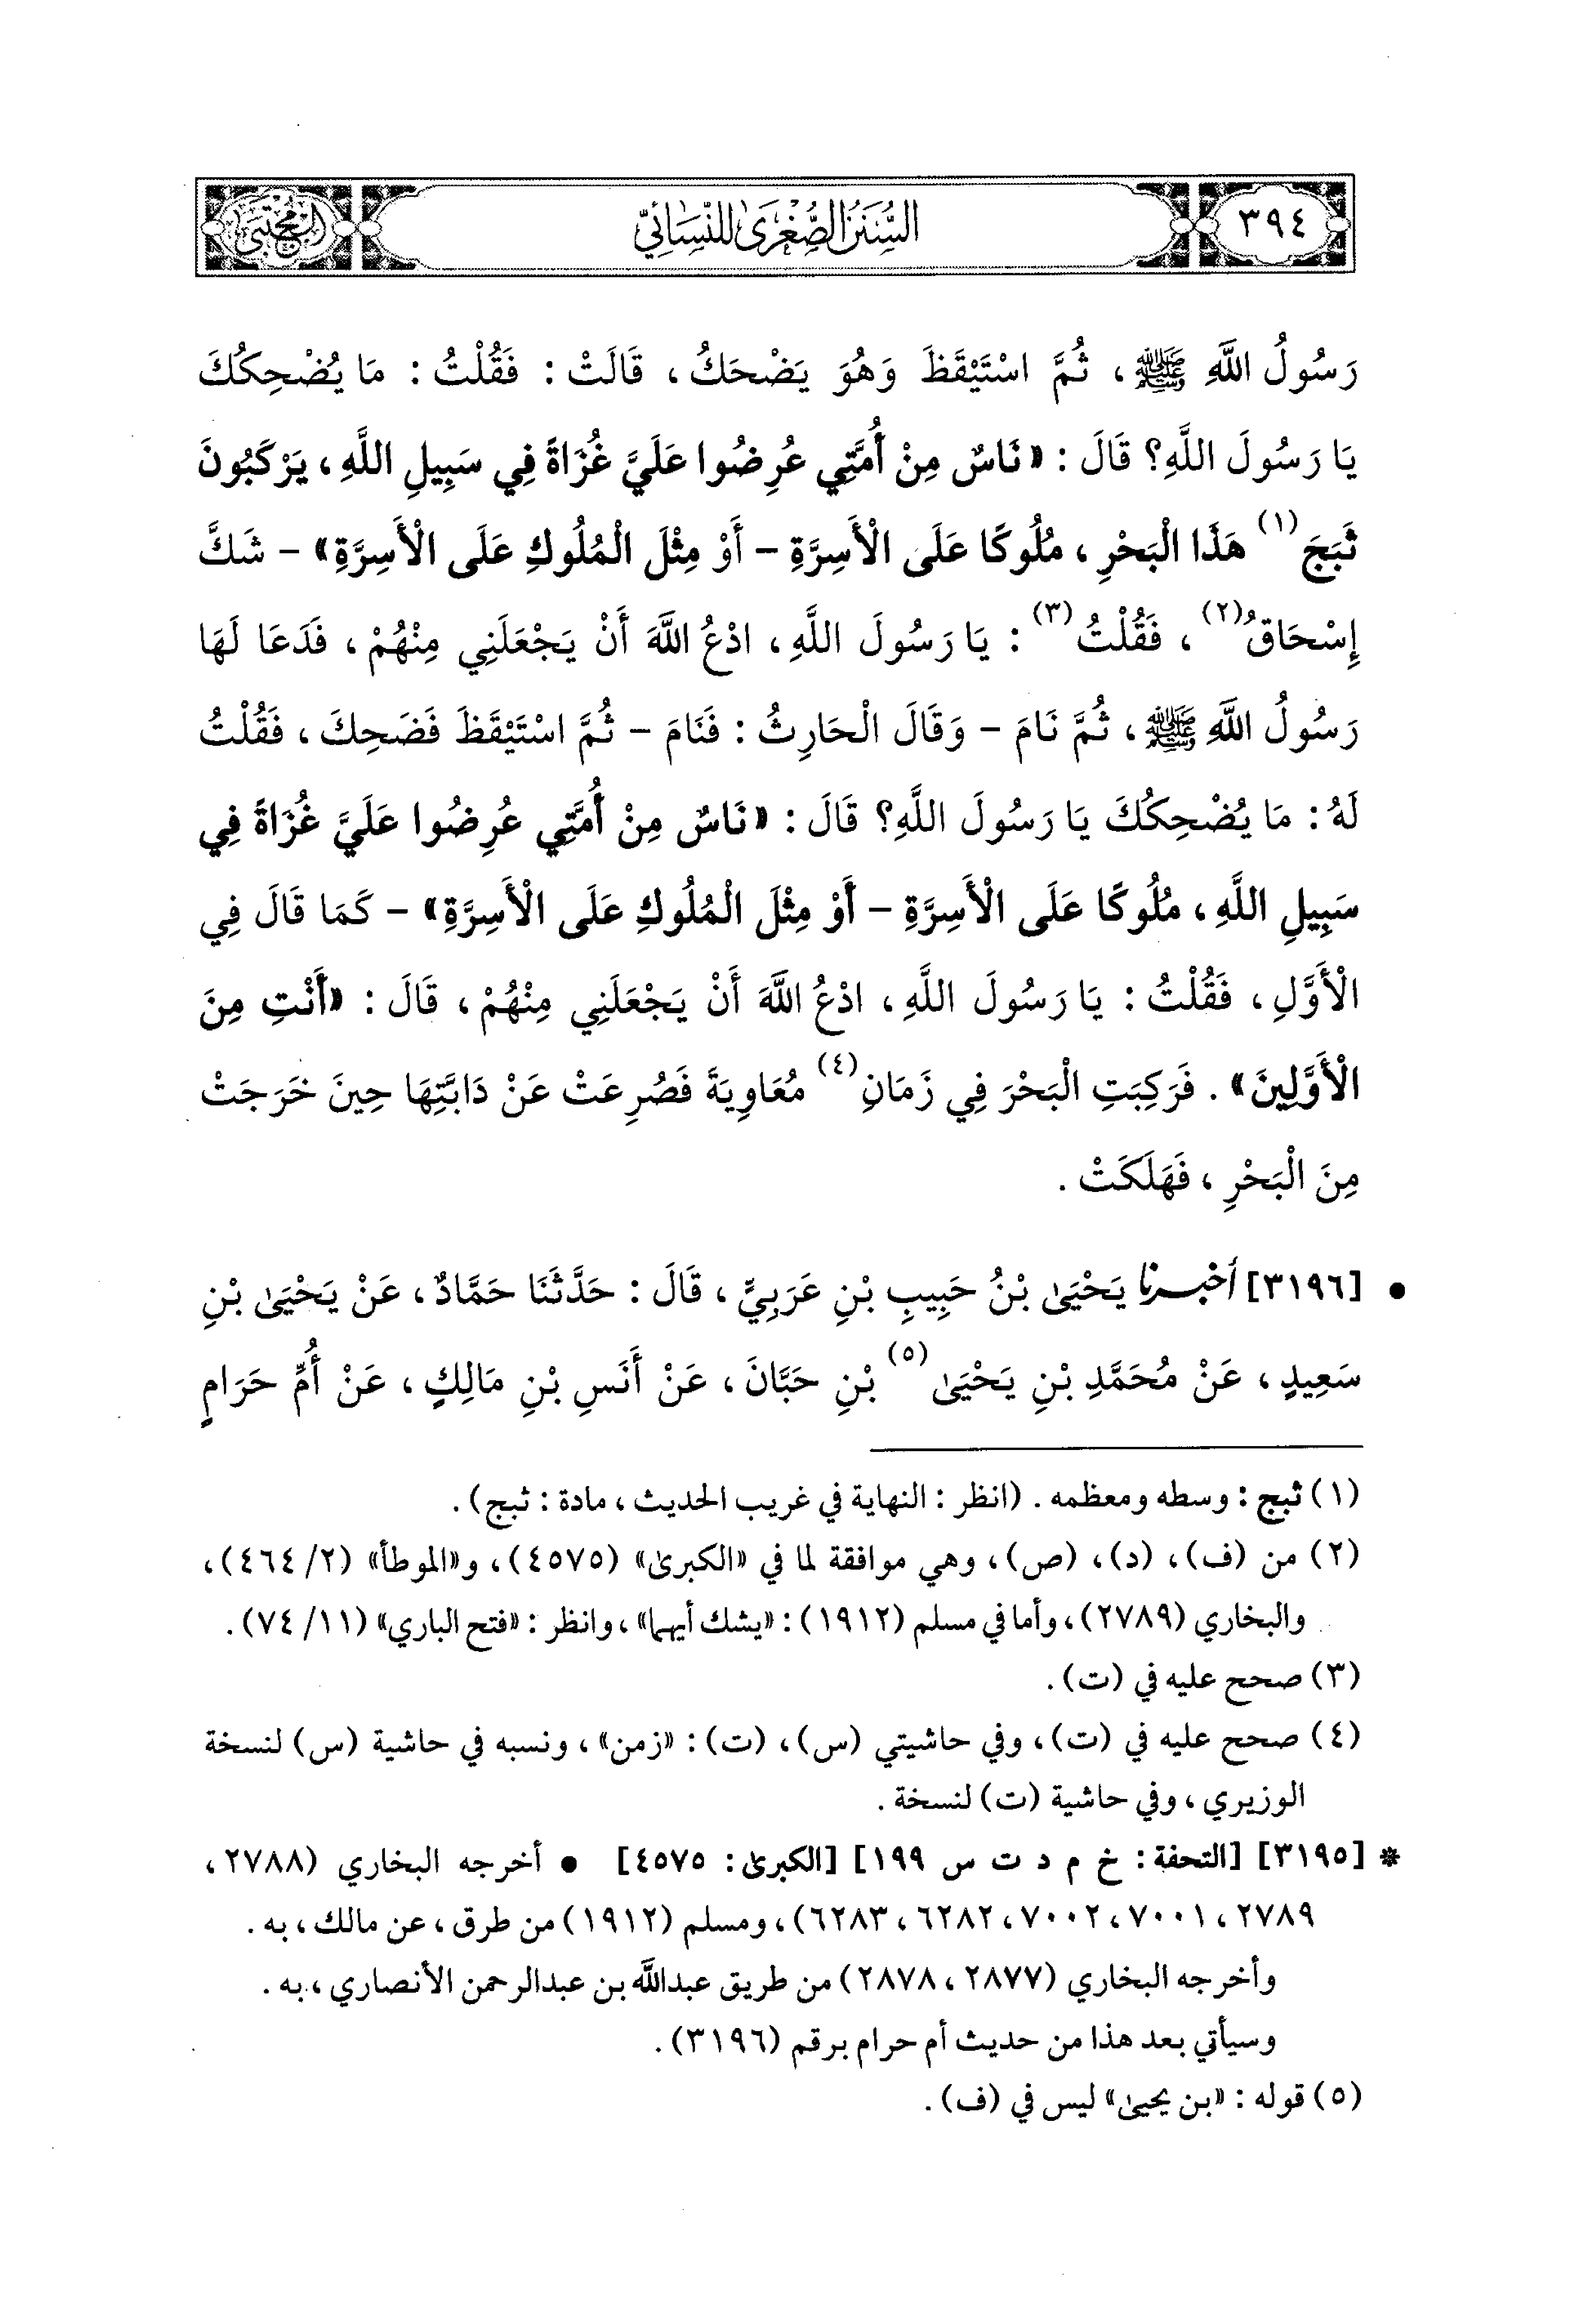 ٣٩٤
السُّنَنُ الصُّغْرَىٰ لِلنَّسَائِيِّ
المجتبى
رَسُولُ اللَّهِ ﷺ، ثُمَّ اسْتَيْقَظَ وَهُوَ يَضْحَكُ، قَالَتْ: فَقُلْتُ: مَا يُضْحِكُكَ
يَا رَسُولَ اللَّهِ؟ قَالَ: «نَاسٌ مِنْ أُمَّتِي عُرِضُوا عَلَيَّ غُزَاةً فِي سَبِيلِ اللَّهِ، يَرْكَبُونَ
ثَبَجَ(١) هَذَا الْبَحْرِ، مُلُوكًا عَلَى الْأَسِرَّةِ - أَوْ مِثْلَ الْمُلُوكِ عَلَى الْأَسِرَّةِ» - شَكَّ
إِسْحَاقُ(٢)، فَقُلْتُ(٣): يَا رَسُولَ اللَّهِ، ادْعُ اللَّهَ أَنْ يَجْعَلَنِي مِنْهُمْ، فَدَعَا لَهَا
رَسُولُ اللَّهِ ﷺ، ثُمَّ نَامَ - وَقَالَ الْحَارِثُ: فَنَامَ - ثُمَّ اسْتَيْقَظَ فَضَحِكَ، فَقُلْتُ
لَهُ: مَا يُضْحِكُكَ يَا رَسُولَ اللَّهِ؟ قَالَ: «نَاسٌ مِنْ أُمَّتِي عُرِضُوا عَلَيَّ غُزَاةً فِي
سَبِيلِ اللَّهِ، مُلُوكًا عَلَى الْأَسِرَّةِ - أَوْ مِثْلَ الْمُلُوكِ عَلَى الْأَسِرَّةِ» - كَمَا قَالَ فِي
الْأَوَّلِ، فَقُلْتُ: يَا رَسُولَ اللَّهِ، ادْعُ اللَّهَ أَنْ يَجْعَلَنِي مِنْهُمْ، قَالَ: «أَنْتِ مِنَ
الْأَوَّلِينَ». فَرَكِبَتِ الْبَحْرَ فِي زَمَانِ(٤) مُعَاوِيَةَ فَصُرِعَتْ عَنْ دَابَّتِهَا حِينَ خَرَجَتْ
مِنَ الْبَحْرِ، فَهَلَكَتْ.
• [٣١٩٦] أَخْبَرَنَا يَحْيَىٰ بْنُ حَبِيبِ بْنِ عَرَبِيٍّ، قَالَ: حَدَّثَنَا حَمَّادٌ، عَنْ يَحْيَىٰ بْنِ
سَعِيدٍ، عَنْ مُحَمَّدِ بْنِ يَحْيَىٰ(٥) بْنِ حَبَّانَ، عَنْ أَنَسِ بْنِ مَالِكٍ، عَنْ أُمِّ حَرَامٍ
(١) ثبج: وسطه ومعظمه. (انظر: النهاية في غريب الحديث، مادة: ثبج).
(٢) من (ف)، (د)، (ص)، وهي موافقة لما في «الكبرىٰ» (٤٥٧٥)، و«الموطأ» (٢/ ٤٦٤)،
والبخاري (٢٧٨٩)، وأما في مسلم (١٩١٢): «يشك أيهما»، وانظر: «فتح الباري» (١١/ ٧٤).
(٣) صحح عليه في (ت).
(٤) صحح عليه في (ت)، وفي حاشيتي (س)، (ت): «زمن»، ونسبه في حاشية (س) لنسخة
الوزيري، وفي حاشية (ت) لنسخة.
* [٣١٩٥] [التحفة: خ م د ت س ١٩٩] [الكبرىٰ: ٤٥٧٥] • أخرجه البخاري (٢٧٨٨،
٢٧٨٩، ٧٠٠١، ٧٠٠٢، ٦٢٨٢، ٦٢٨٣)، ومسلم (١٩١٢) من طرق، عن مالك، به.
وأخرجه البخاري (٢٨٧٧، ٢٨٧٨) من طريق عبدالله بن عبدالرحمن الأنصاري، به.
وسيأتي بعد هذا من حديث أم حرام برقم (٣١٩٦).
(٥) قوله: «بن يحيىٰ» ليس في (ف).